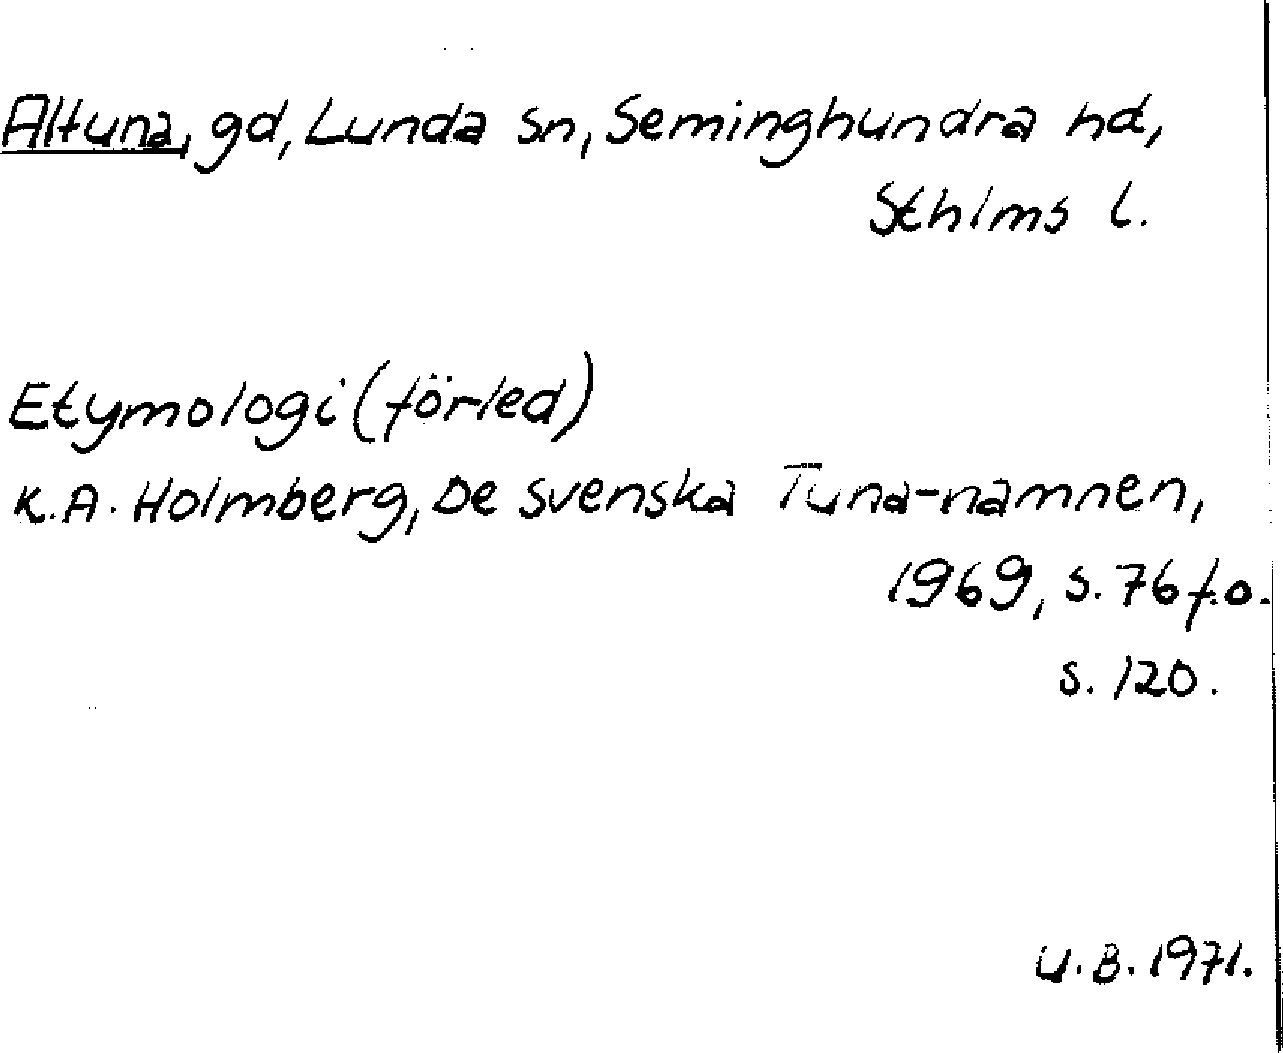 Altuna, gd, Lunda sn, Seminghundra hd,
Sthlms l.
Etymologi (förled)
K.A. Holmberg, De svenska Tuna-namnen,
1969, s. 76 f.o.
s. 120.
U.B. 1971.